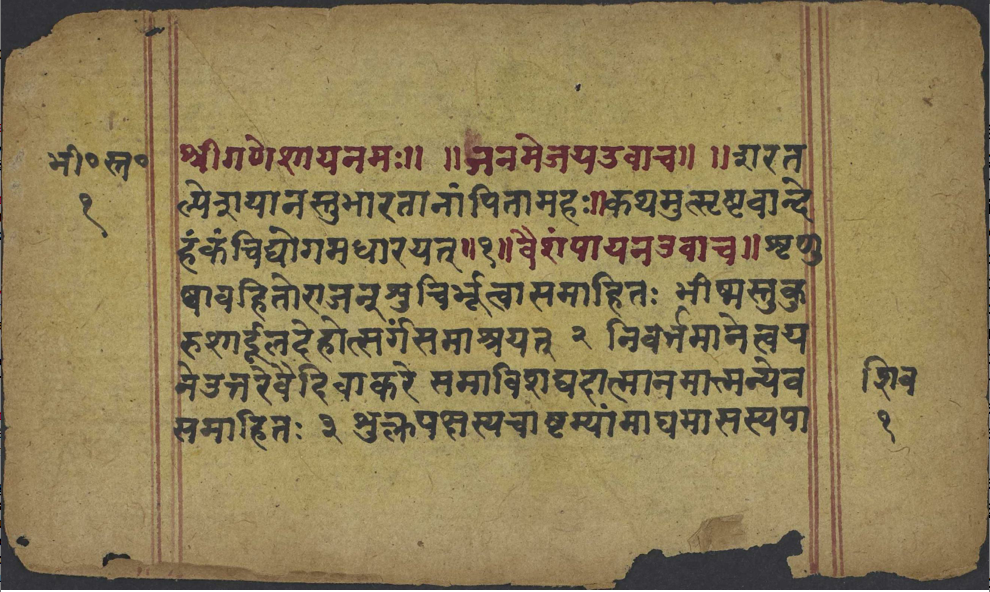 भी॰स्त॰
१
श्रीगणेशायनमः॥ ॥जनमेजयउवाच॥ ॥शरत
ल्पेशयानस्तुभारतानांपितामहः॥कथमुत्सृष्टवान्दे
हंकंचिद्योगमधारयत्॥१॥वैशंपायनउवाच॥शृणु
ष्वावहितोराजन्शुचिर्भूत्वासमाहितः भीष्मस्तुकु
रुशार्दूलदेहोत्सर्गंसमाश्रयत् २ निवर्त्तमानेत्वय
नेउत्तरेवैदिवाकरे समाविशद्यहात्मानमात्मन्येव
समाहितः ३ शुक्लपक्षस्यचाष्टम्यांमाघमासस्यपा
शिव
१